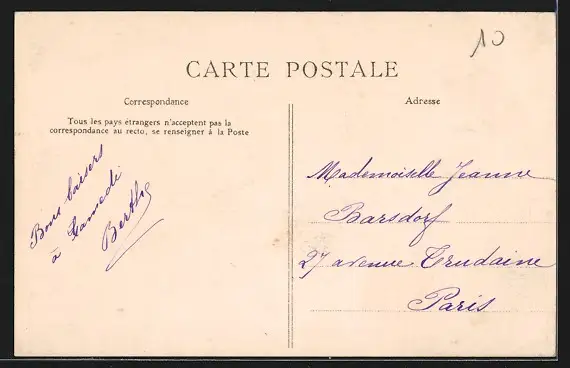 10
CARTE POSTALE
Correspondance
Tous les pays étrangers n'acceptent pas la
correspondance au recto, se renseigner à la Poste
Bons baisers
à Samedi
Berthe
Adresse
Mademoiselle Jeanne
Barsdorf
27 avenue Trudaine
Paris